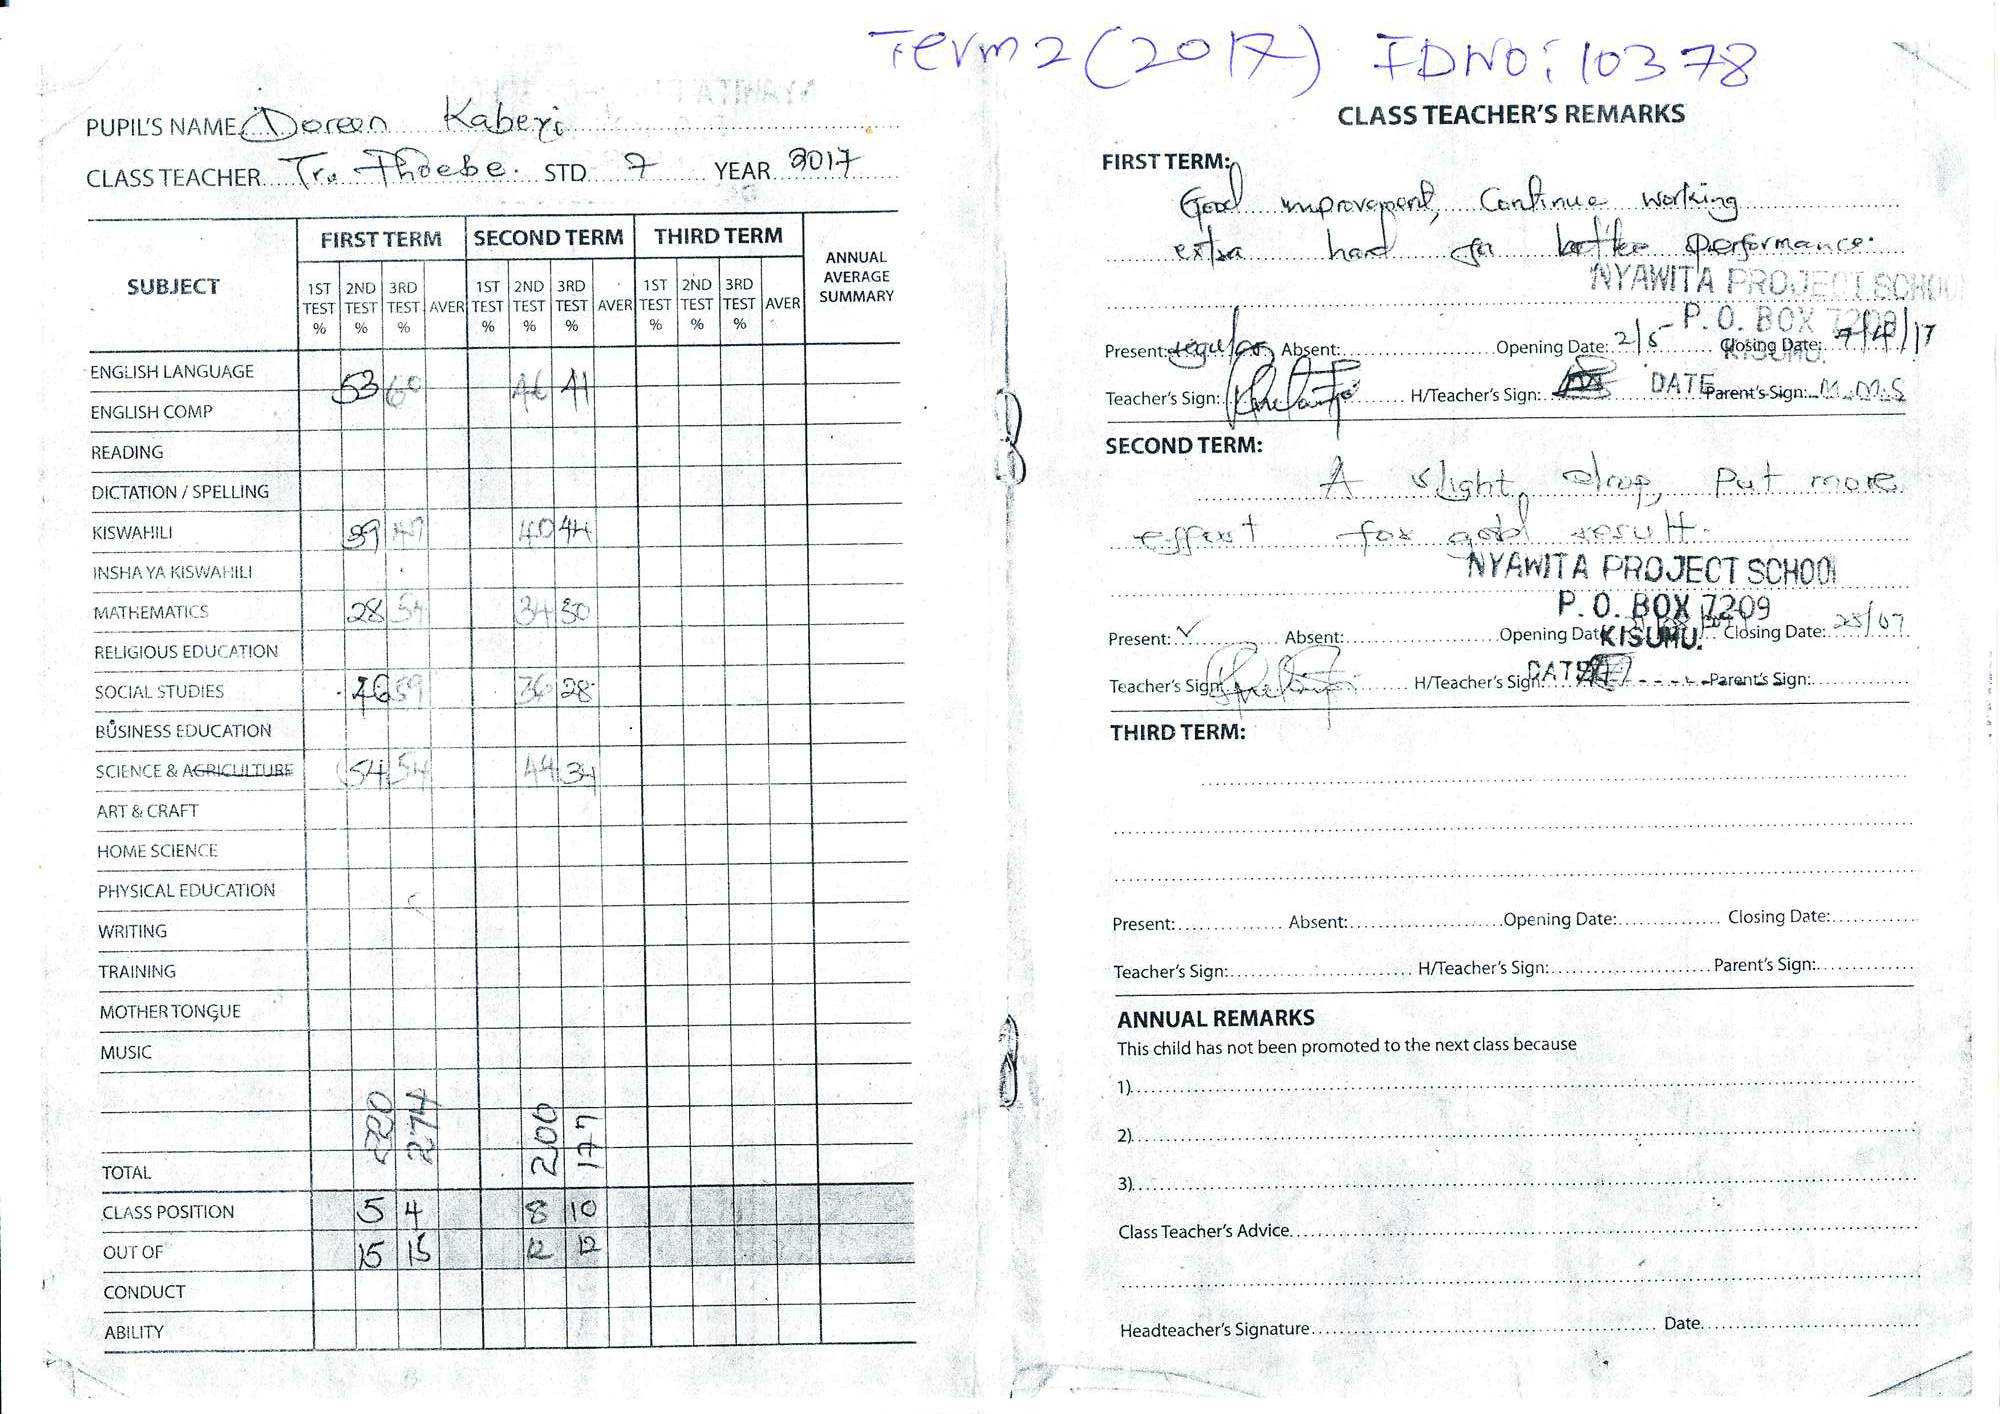 Term 2 (2017) IDNO: 10378
PUPIL'S NAME Doreen Kaberi
CLASS TEACHER Tr. Phoebe. STD 7 YEAR 2017
SUBJECT FIRST TERM SECOND TERM THIRD TERM ANNUAL AVERAGE SUMMARY
1ST TEST % 2ND TEST % 3RD TEST % AVER 1ST TEST % 2ND TEST % 3RD TEST % AVER 1ST TEST % 2ND TEST % 3RD TEST % AVER
ENGLISH LANGUAGE
53 60 46 41
ENGLISH COMP
READING
DICTATION / SPELLING
KISWAHILI 39 47 40 44
INSHA YA KISWAHILI
MATHEMATICS 28 54 34 30
RELIGIOUS EDUCATION
SOCIAL STUDIES 46 59 36 28
BUSINESS EDUCATION
SCIENCE & AGRICULTURE 54 54 44 34
ART & CRAFT
HOME SCIENCE
PHYSICAL EDUCATION
WRITING
TRAINING
MOTHER TONGUE
MUSIC
TOTAL 220 274 200 177
CLASS POSITION 5 4 8 10
OUT OF 15 15 12 12
CONDUCT
ABILITY
CLASS TEACHER'S REMARKS
FIRST TERM:
Good improvement, Continue working
extra hard for better performance.
NYAWITA PROJECT SCHOOL
P. O. BOX 7209
KISUMU.
Present: regular Absent: Opening Date: 2/5 Closing Date: 7/4/17
Teacher's Sign: H/Teacher's Sign: DATE Parent's Sign: M.M.S
SECOND TERM:
A slight drop, Put more
effort for good result.
NYAWITA PROJECT SCHOOL
P. O. BOX 7209
KISUMU.
Present: ✓ Absent: Opening Date: Closing Date: 28/07
Teacher's Sign: H/Teacher's Sign: DATE Parent's Sign:
THIRD TERM:
Present: Absent: Opening Date: Closing Date:
Teacher's Sign: H/Teacher's Sign: Parent's Sign:
ANNUAL REMARKS
This child has not been promoted to the next class because
1)
2)
3)
Class Teacher's Advice
Headteacher's Signature Date